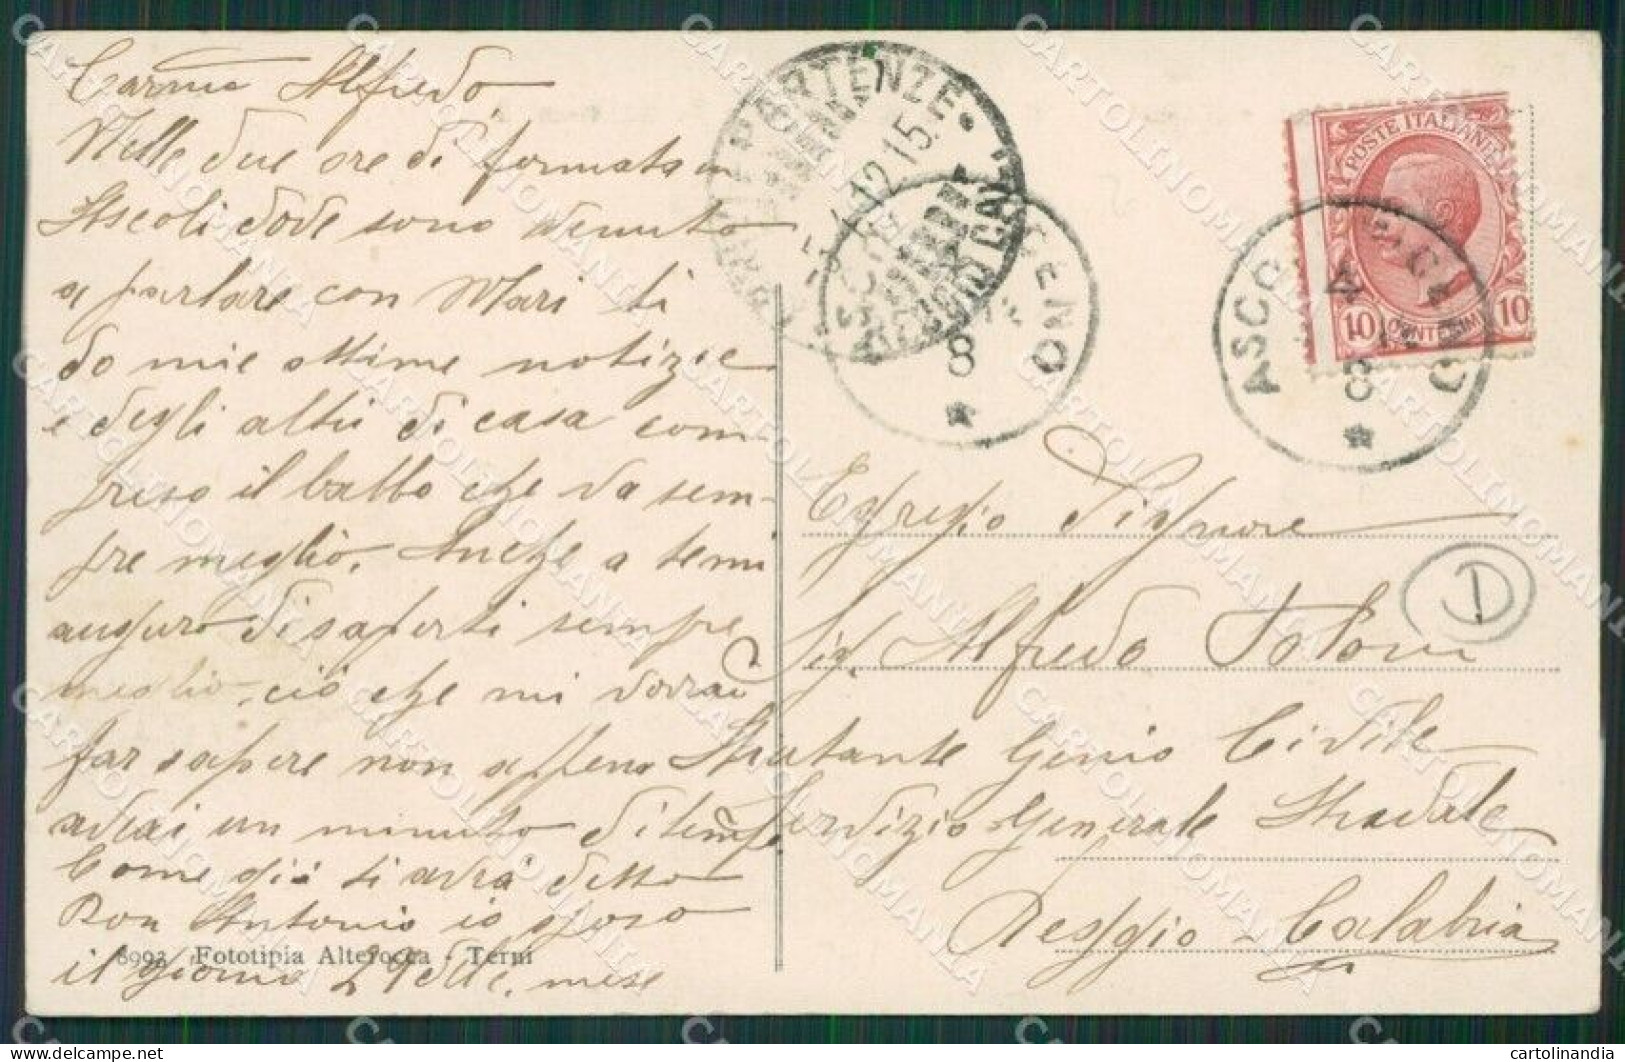 Carmo Alfredo,
Nelle due ore di fermata in
Ascoli dove sono venuto
a parlare con Mari ti
do mie ottime notizie
e degli altri di casa com-
preso il babbo che va sem-
pre meglio. Anche a te mi
auguro di saperti sempre
meglio, ciò che mi dovrai
far sapere non appena
avrai un minuto di tempo.
Come già ti avrà detto
Don Antonio io sposo
il giorno 29 del mese
8993 Fototipia Alterocca - Terni
PARTENZE
12 15
REGGIO CAL
8
POSTE ITALIANE
10 CENTESIMI 10
ASCOLI
4
8
Egregio Signore
Sig. Alfredo
Aiutante Genio Civile
Servizio Generale Stradale
Reggio-Calabria
D
CARTOLINOMANIA
cartolinandia